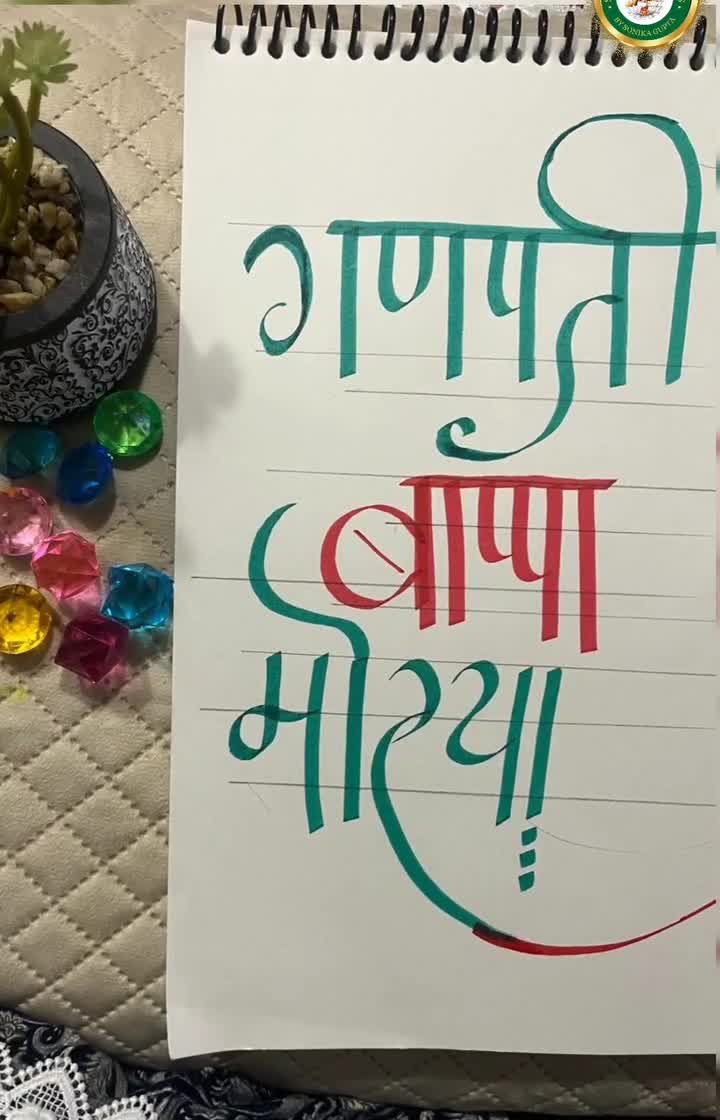 BY SONIKA GUPTA
गणपती
बाप्पा
मोरया